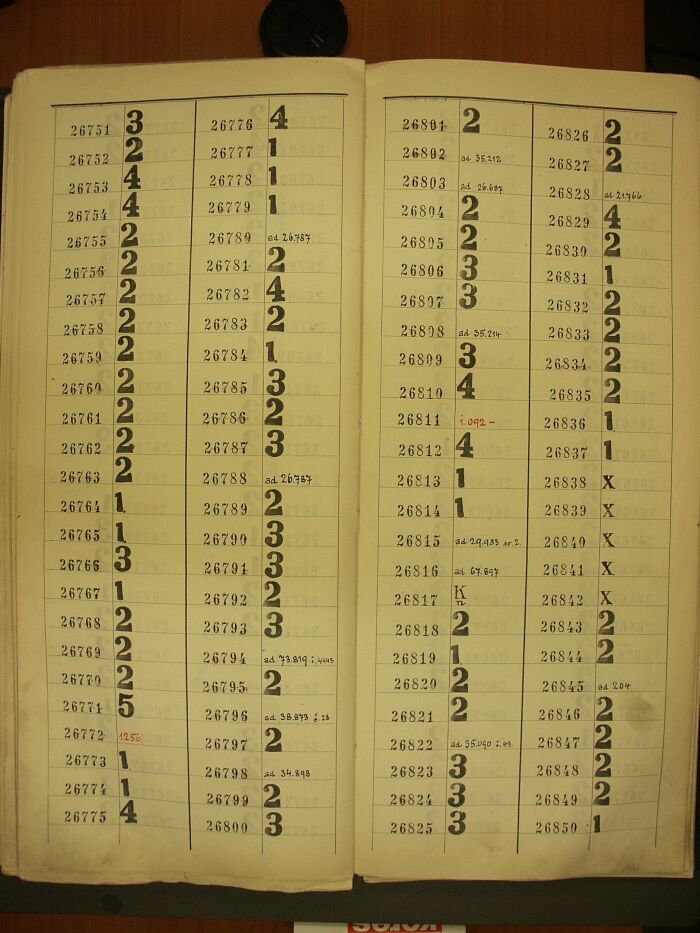 26751 3
26752 2
26753 4
26754 4
26755 2
26756 2
26757 2
26758 2
26759 2
26760 2
26761 2
26762 2
26763 2
26764 1
26765 1
26766 3
26767 1
26768 2
26769 2
26770 2
26771 5
26772 1256
26773 1
26774 1
26775 4
26776 4
26777 1
26778 1
26779 1
26780 ad 26.787
26781 2
26782 4
26783 2
26784 1
26785 3
26786 2
26787 3
26788 ad 26.787
26789 2
26790 3
26791 3
26792 2
26793 3
26794 ad 73.819
26795 2
26796 ad 38.873 j. 28
26797 2
26798 ad 34.898
26799 2
26800 3
26801 2
26802 ad 35.212
26803 ad 26.687
26804 2
26805 2
26806 3
26807 3
26808 ad 35.214
26809 3
26810 4
26811 i.092 -
26812 4
26813 1
26814 1
26815 ad 29.983 nr. 2.
26816 ad 67.897
26817 K n
26818 2
26819 1
26820 2
26821 2
26822 ad 35.090 i. 43.
26823 3
26824 3
26825 3
26826 2
26827 2
26828 ad 21.766
26829 4
26830 2
26831 1
26832 2
26833 2
26834 2
26835 2
26836 1
26837 1
26838 X
26839 X
26840 X
26841 X
26842 X
26843 2
26844 2
26845 ad 204
26846 2
26847 2
26848 2
26849 2
26850 1